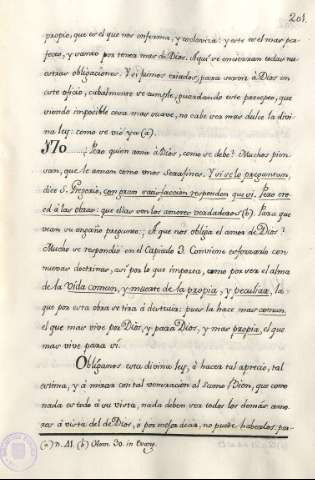 201.
propio, que es el que nos enferma, y
y este es el mas per-
fecto, y santo por tener mas de Dios. Aqui se encierran todas nu-
estras obligaciones. Y si fuimos criados, para servir à Dios en
este oficio, cabalmente se cumple, guardando este precepto, que
siendo imposible cosa mas suave, no cabe sea mas dulce la divi-
na ley: como se vió ya (a).
¿Pero quien ama à Dios, como se debe? Muchos pien-
san, que le aman como unos Serafines. Y si se lo preguntan,
dice S. Gregorio, con gran satisfaccion responden que si. Pero cre-
ed à las obras: que ellas son los amores verdaderos (b). Para que
vean su engaño pregunto: ¿A que nos obliga el amor de Dios?
Mucho se respondió en el Capitulo 3. Conviene esforzarlo con
nuevas doctrinas, asi por lo que importa, como por ser el alma
de la Vida comun, y muerte de la propia, y peculiar, la
que por esta obra se tira à destruir: pues la hace mas comun,
el que mas vive por Dios, y para Dios, y mas propia, el que
mas vive para si.
Obliganos esta divina ley, à hacer tal aprecio, tal
estima, y à mirar con tal veneracion al Sumo Bien, que como
nada es todo à su vista, nada deben ser todos los demás amo-
res à vista del de Dios, ò por mejor decir, no puede haberlos, por-
(a) n. 41. (b) Hom. 30. in Evang.